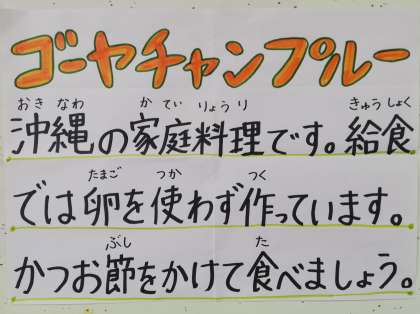 ゴーヤチャンプルー
おきなわ かてい りょうり きゅうしょく
沖縄の家庭料理です。給食
たまご つか つく
では卵を使わず作っています。
ぶし た
かつお節をかけて食べましょう。